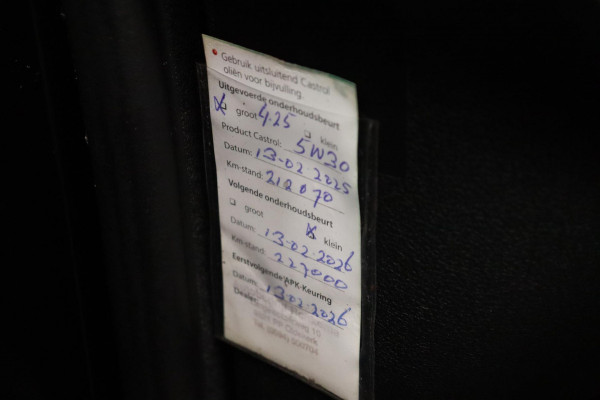 Gebruik uitsluitend Castrol
oliën voor bijvulling.
Uitgevoerde onderhoudsbeurt
groot 4.25 klein
Product Castrol: 5W30
Datum: 13-02 2025
Km-stand: 212070
Volgende onderhoudsbeurt
groot klein
Datum: 13-02-2026
Km-stand: 227000
Eerstvolgende APK-Keuring
Datum: 13-02-2026
Dealer: